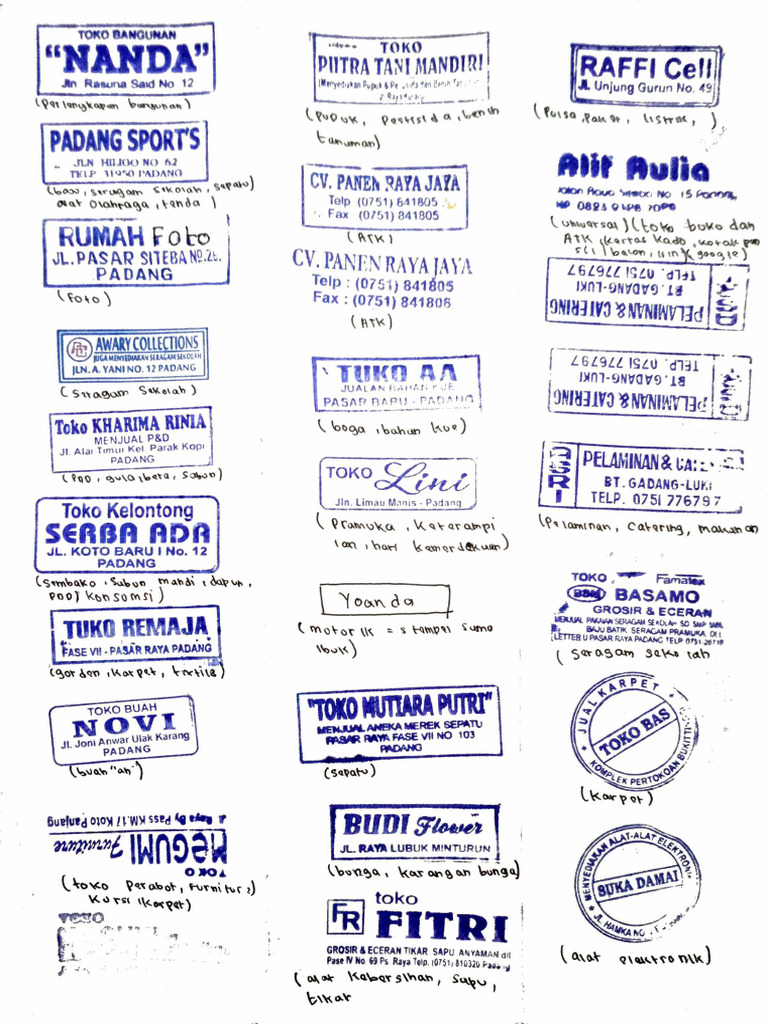 TOKO BANGUNAN
"NANDA"
Jln Rasuna Said No 12
(Perlengkapan bangunan)
PADANG SPORT'S
JLN HILIGO NO 62
TELP 31950 PADANG
(baju, seragam sekolah, sepatu)
alat olahraga, tenda)
RUMAH Foto
JL. PASAR SITEBA No. 26.
PADANG
(Foto)
AWARY COLLECTIONS
JUGA MENYEDIAKAN SERAGAM SEKOLAH
JLN. A. YANI NO. 12 PADANG
(Seragam Sekolah)
Toko KHARIMA RINIA
MENJUAL P&D
Jl. Alai Timur Kel. Parak Kopi
PADANG
(Pop, gula, beras, sabun)
Toko Kelontong
SERBA ADA
JL. KOTO BARU I No. 12
PADANG
(Sembako, Sabun mandi, dapur,
pop, konsumsi)
TUKO REMAJA
FASE VII - PASAR RAYA PADANG
(gorden, karpet, textile)
TOKO BUAH
NOVI
Jl. Joni Anwar Ulak Karang
PADANG
(buah "an)
TOKO
MEGUMI Furniture
Jl. Raya By Pass KM.17 Koto Panjang
(toko Perabot, Furniture)
Kursi, karpet)
TOKO
TOKO
PUTRA TANI MANDIRI
(Menyediakan Pupuk & Pestisida dan Benih
(Pupuk, Pestisida, benih
tanaman)
CV. PANEN RAYA JAYA
Telp (0751) 841805
Fax (0751) 841805
(ATK)
CV. PANEN RAYA JAYA
Telp : (0751) 841805
Fax : (0751) 841806
(ATK)
TUKO AA
JUALAN BAHAN KUE
PASAR BARU - PADANG
(boga, bahan kue)
TOKO Lini
Jln. Limau Manis - Padang
(Pramuka, Keterampi
lan, hari kemerdekaan)
Yoanda
(motor lk = stempel sama
ibuk)
"TOKO MUTIARA PUTRI"
MENJUAL ANEKA MEREK SEPATU
PASAR RAYA FASE VII NO 103
PADANG
(Sepatu)
BUDI Flower
JL. RAYA LUBUK MINTURUN
(bunga, karangan bunga)
FR toko
FITRI
GROSIR & ECERAN TIKAR SAPU ANYAMAN dll
Fase IV No. 69 Ps. Raya Telp. (0751) 810320 Padang
(alat kebersihan, sapu,
tikar
RAFFI Cell
JL. Unjung Gurun No. 49
(Pulsa, paket, listrik, )
Alif Aulia
No 15 Padang
HP 0823
(universal) (toko buko dan
ATK, kertas kado, kotak
balon, google)
PELAMINAN & CATERING
BT. GADANG-LUKI
TELP. 0751 776797
PELAMINAN & CATERING
BT. GADANG-LUKI
TELP. 0751 776797
PELAMINAN &
BT. GADANG-LUKI
TELP. 0751 776797
(Pelaminan, catering, makanan
TOKO Famatex
BSM BASAMO
GROSIR & ECERAN
MENJUAL PAKAIAN SERAGAM SEKOLAH SD SMP SMA
BAJU BATIK SERAGAM PRAMUKA,
LETTER U PASAR RAYA PADANG TELP 0751-26718
(Seragam sekolah
JUAL KARPET
TOKO BAS
KOMPLEK PERTOKOAN
(Karpet)
MENYEDIAKAN ALAT-ALAT ELEKTRONIK
SUKA DAMAI
JL. HAMKA NO.
(alat elektronik)